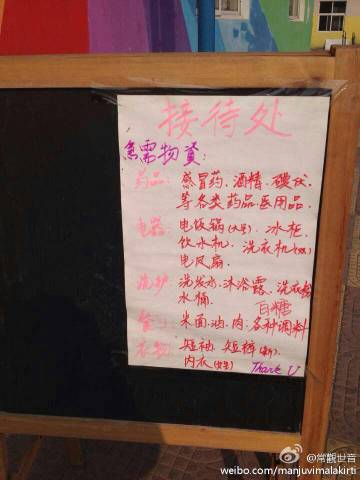 接待处
急需物資:
药品: 感冒药、酒精、碘伏、
等各类药品医用品.
电器: 电饭锅(大号)、冰柜、
饮水机、洗衣机(双)、
电风扇.
洗护 洗发水、沐浴露、洗衣粉
水桶、 白糖
米面、油、肉;各种调料
衣物: 短袖 短裤(新)、
内衣(女号) Thank U
@常觀世音
weibo.com/manjuvimalakirti